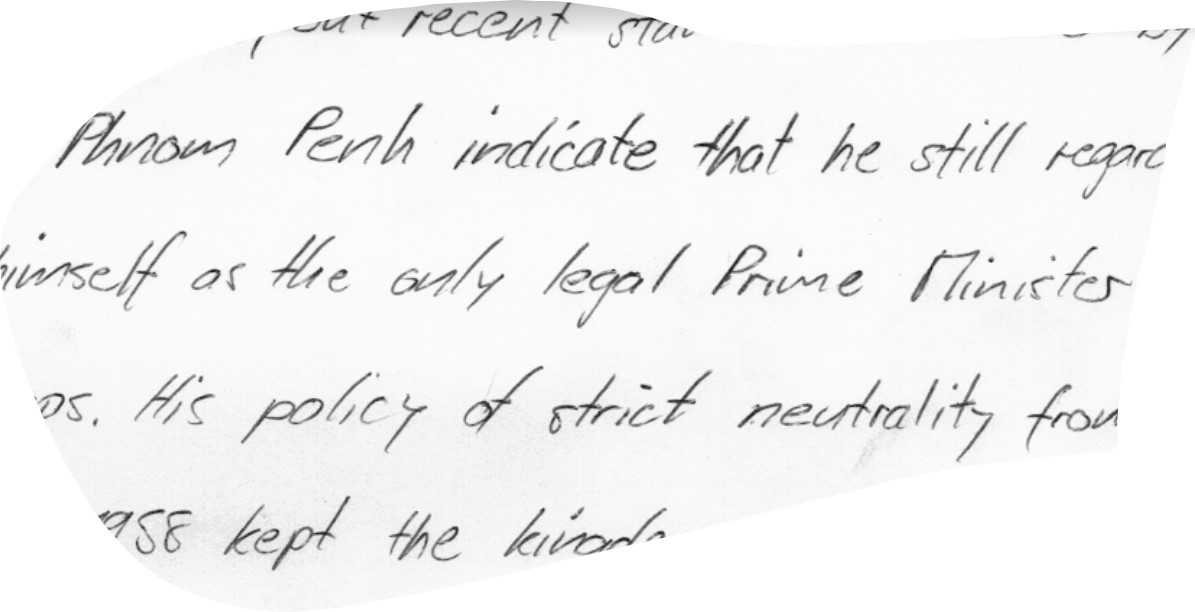 recent
Phnom Penh indicate that he still
himself as the only legal Prime Minister
His policy of strict neutrality from
1958 kept the